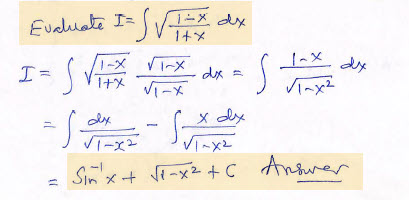 Evaluate I = ∫ √((1-x)/(1+x)) dx
I = ∫ √((1-x)/(1+x)) √(1-x)/√(1-x) dx = ∫ (1-x)/√(1-x²) dx
= ∫ dx/√(1-x²) - ∫ x dx/√(1-x²)
= Sin⁻¹x + √(1-x²) + C Answer